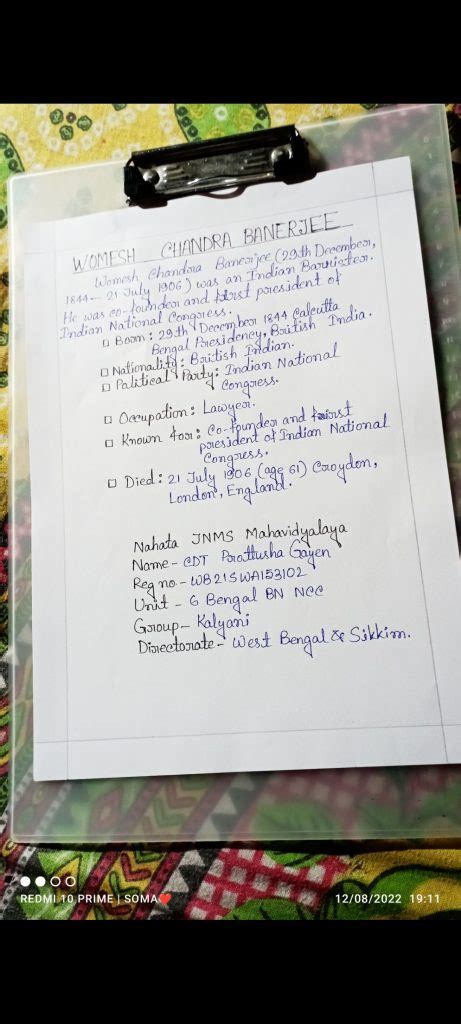 WOMESH CHANDRA BANERJEE
Womesh Chandra Banerjee (29th December,
1844 - 21 July 1906) was an Indian Barrister.
He was co-founder and first president of
Indian National Congress.
□ Born: 29th December 1844 Calcutta
Bengal Presidency, British India.
□ Nationality: British Indian.
□ Political Party: Indian National
Congress.
□ Occupation: Lawyer.
□ Known for: Co-founder and first
president of Indian National
Congress.
□ Died: 21 July 1906 (age 61) Croydon,
London, England.
Nahata JNMS Mahavidyalaya
Name - CDT Prattusha Gayen
Reg no - WB21SWA153102
Unit - 6 Bengal BN NCC
Group - Kalyani
Directorate - West Bengal & Sikkim.
REDMI 10 PRIME | SOMA❤
12/08/2022 19:11